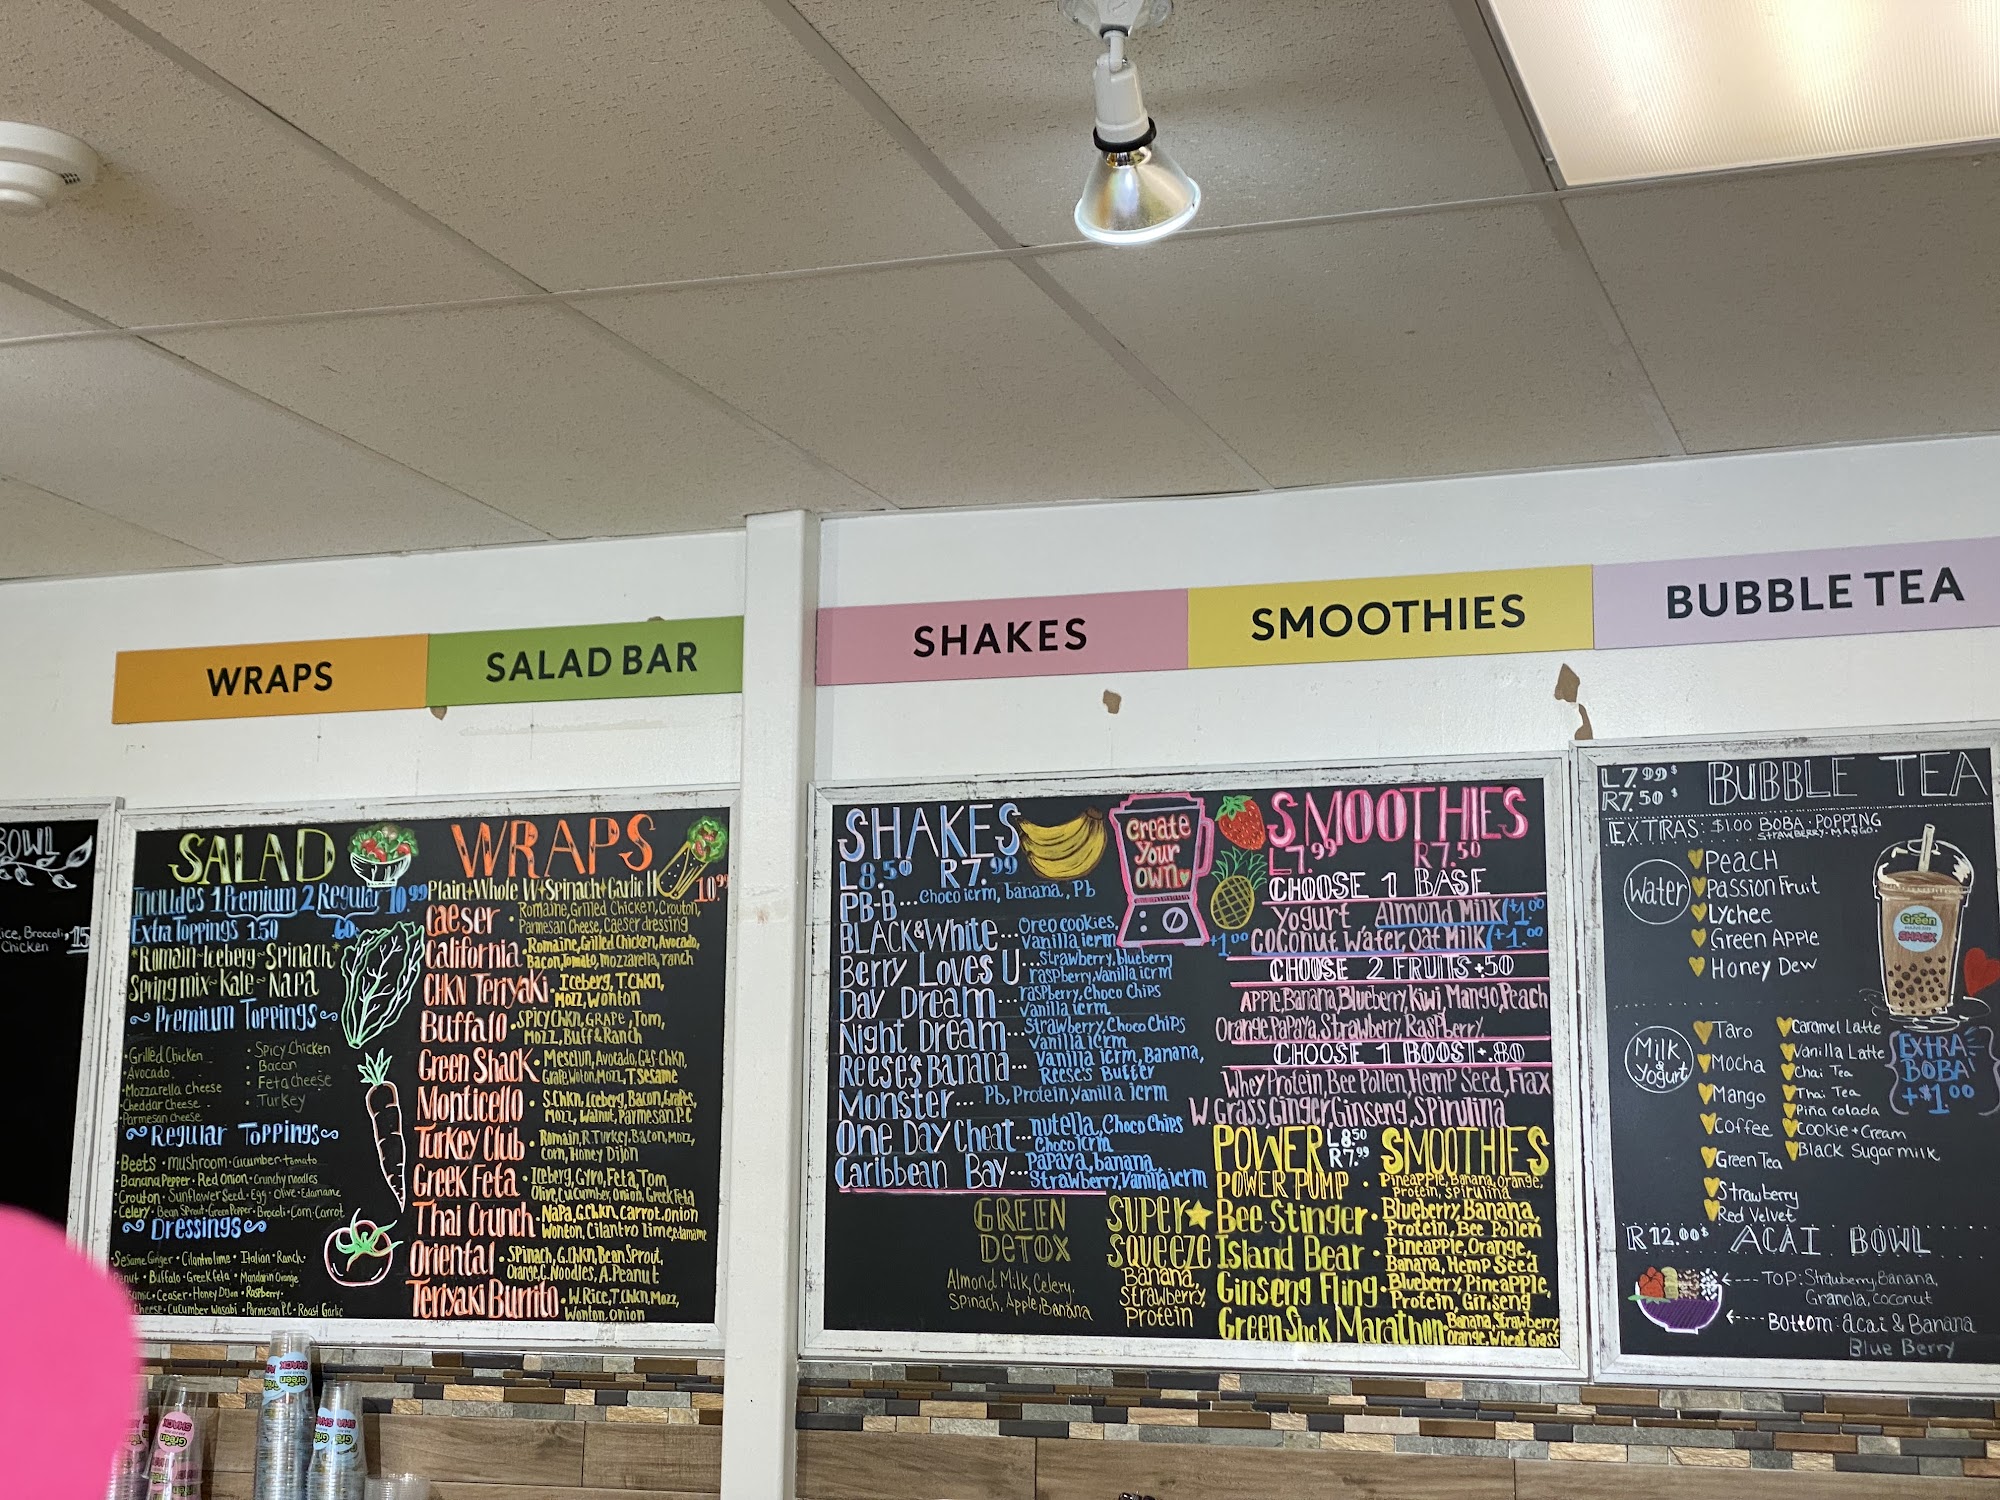 WRAPS
SALAD BAR
SHAKES
SMOOTHIES
BUBBLE TEA
BOWL
Rice, Broccoli,
Chicken
15
SALAD
Includes 1 Premium 2 Regular 10.99
Extra Toppings 1.50 .60
*Romain~Iceberg~Spinach*
Spring mix~Kale~Napa
~Premium Toppings~
•Grilled Chicken
•Avocado
•Mozzarella cheese
•Cheddar Cheese
•Parmesan cheese
•Spicy Chicken
•Bacon
•Feta cheese
•Turkey
~Regular Toppings~
•Beets •mushroom•cucumber•tomato
•Banana Pepper•Red Onion•Crunchy noodles
•Crouton•Sunflower Seed•Egg•Olive•Edamame
•Celery•Bean Sprout•Green Pepper•Brocoli•Corn•Carrot
~Dressings~
•Sesame Ginger•Cilantro lime•Italian•Ranch•
Peanut•Buffalo•Greek feta•Mandarin Orange
•Ceaser•Honey Dijon•Raspberry•
Cheese•Cucumber Wasabi•Parmesan P.C•Roast Garlic
WRAPS
Plain+Whole W+Spinach+Garlic H 10.99
Caeser • Romaine, Grilled Chicken, Crouton,
Parmesan Cheese, Caeser dressing
California • Romaine, Grilled Chicken, Avocado,
Bacon, Tomato, mozzarella, ranch
CHKN Teriyaki • Iceberg, T.Chkn,
Mozz, Wonton
Buffalo • Spicy Chkn, GRAPE, Tom,
MOZZ, Buff & Ranch
Green Shack • Mesclun, Avocado, G&F Chkn,
Grape, Woton, Mozz, T. Sesame
Monticello • S.Chkn, Iceberg, Bacon, Grapes,
Mozz, Walnut, Parmesan.P.C
Turkey Club • Romain, R.Turkey, Bacon, Mozz,
Corn, Honey Dijon
Greek Feta • Iceberg, Gyro, Feta, Tom
Olive, cucumber, Onion, Greek Feta
Thai Crunch • NaPa, G.Chkn, Carrot, Onion
Wonton, Cilantro Lime, edamame
Oriental • Spinach, G.Chkn, Bean Sprout,
Orange, C.Noodles, A.Peanut
Teriyaki Burrito • W.Rice, T.Chkn, Mozz,
Wonton, Onion
SHAKES
L8.50 R7.99
PB-B...Choco icrm, banana, Pb
BLACK&White...Oreo cookies,
Vanilla icrm
Berry Loves U...Strawberry, blueberry
raspberry, Vanilla icrm
Day Dream...rasPberry, Choco Chips
Vanilla icrm
Night Dream...Strawberry, Choco ChiPs
Vanilla icrm
Reese's Banana...Vanilla icrm, Banana,
Reese's Butter
Monster...Pb, Protein, Vanilla icrm
One Day Cheat...nutella, Choco Chips
Choco icrm
Caribbean Bay...Papaya, banana,
Strawberry, Vanilla icrm
GREEN
DETOX
Almond Milk, Celery,
Spinach, Apple, Banana
SUPER
SQUEEZE
Banana,
Strawberry,
Protein
Create
Your
Own
SMOOTHIES
L7.99 R7.50
CHOOSE 1 BASE
Yogurt Almond Milk(+1.00
+1.00 Coconut Water, Oat Milk(+1.00
CHOOSE 2 FRUITS+.50
Apple, Banana, Blueberry, Kiwi, Mango, Peach
Orange, Papaya, Strawberry, Raspberry
CHOOSE 1 BOOST+.80
Whey Protein, Bee Pollen, Hemp Seed, Flax
W.Grass, Ginger, Ginseng, Spirulina
POWER L8.50 R7.99 SMOOTHIES
POWER PUMP • Pineapple, Banana, Orange,
Protein, Spirulina
Bee Stinger • Blueberry, Banana,
Protein, Bee Pollen
Island Bear • Pineapple, Orange,
Banana, Hemp Seed
Ginseng Fling • Blueberry, Pineapple,
Protein, Ginseng
Green Shck Marathon Banana, Strawberry,
Orange, Wheat Grass
L7.99$
R7.50$
BUBBLE TEA
EXTRAS: $1.00 BOBA•POPPING
STRAWBERRY•MANGO.
Water
Peach
Passion Fruit
Lychee
Green Apple
Honey Dew
Milk
&
Yogurt
Taro
Mocha
Mango
Coffee
Green Tea
Strawberry
Red Velvet
Caramel Latte
Vanilla Latte
Chai Tea
Thai Tea
Piña colada
Cookie+Cream
Black Sugar milk
Green
SHACK
EXTRA
BOBA
+$1.00
R 12.00$ ACAI BOWL
TOP: Strawberry, Banana,
Granola, coconut
Bottom: acai & Banana
Blue Berry